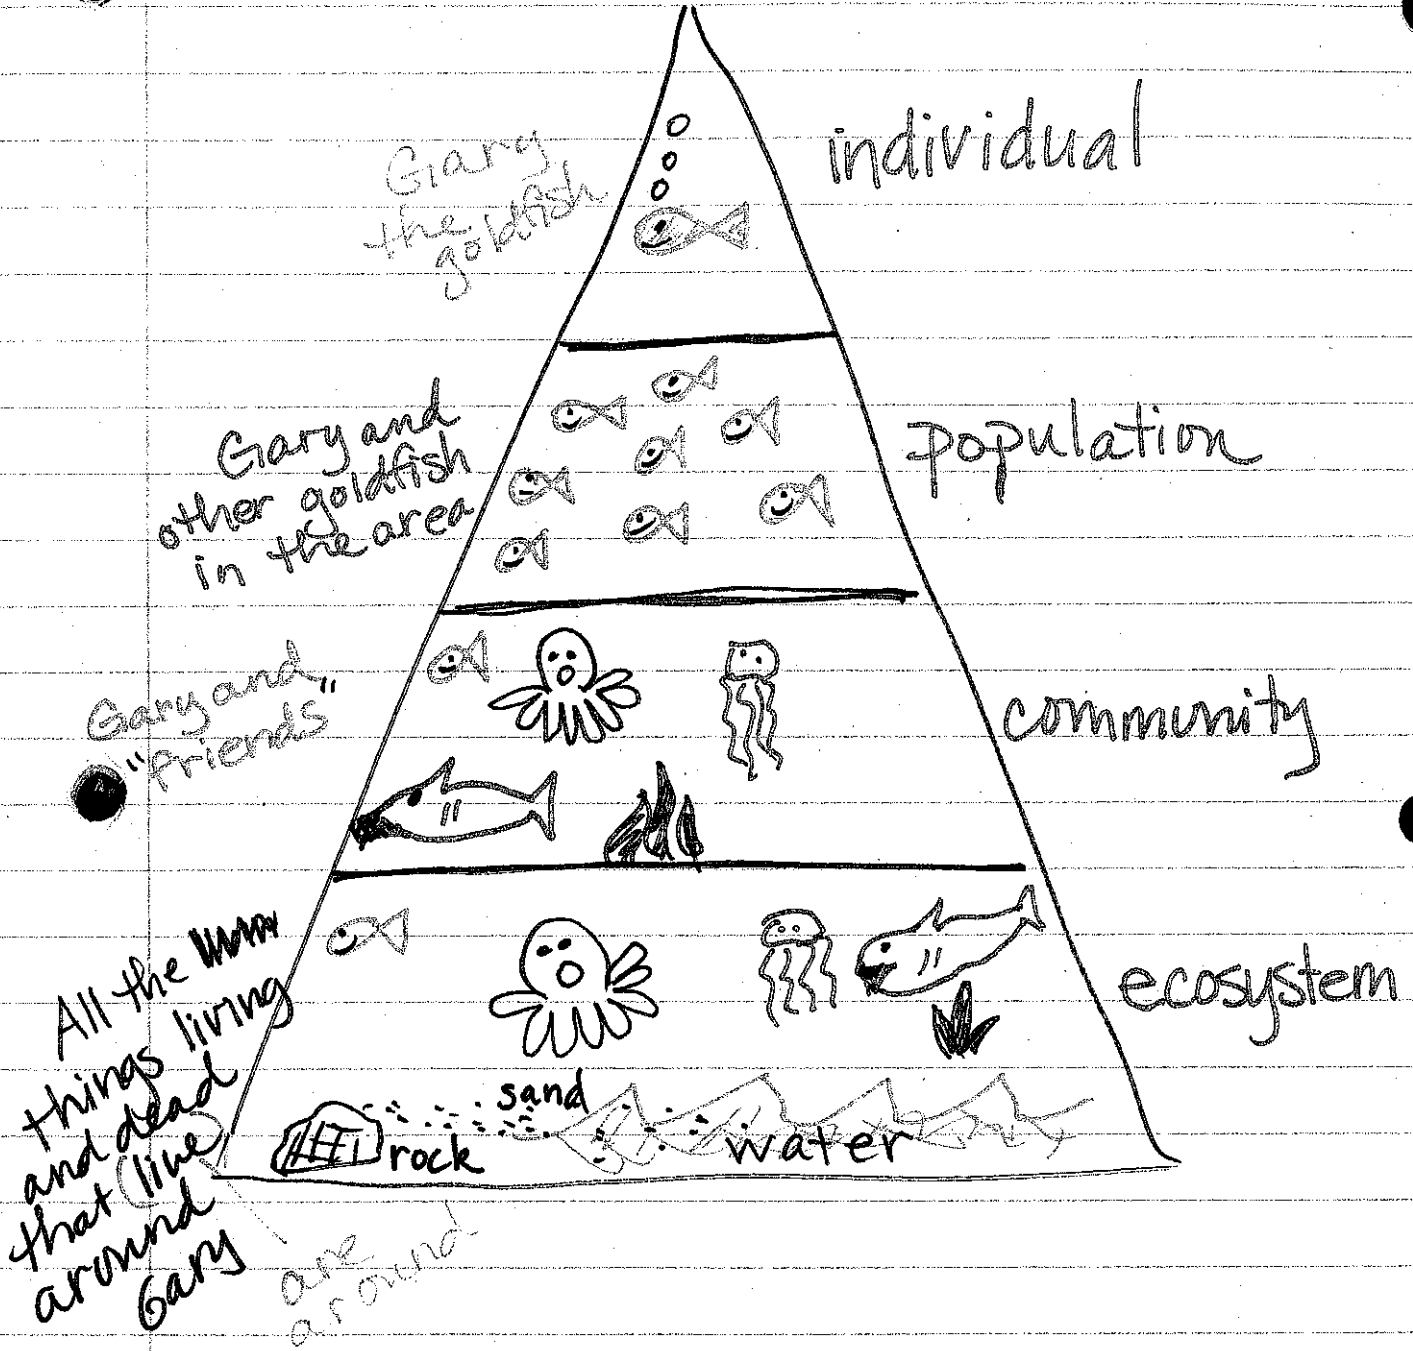 Gary
the
goldfish
individual
Gary and
other goldfish
in the area
population
Gary and
"friends"
community
All the
things living
and dead
that (live)
around
Gary
are
around
ecosystem
sand
rock
water